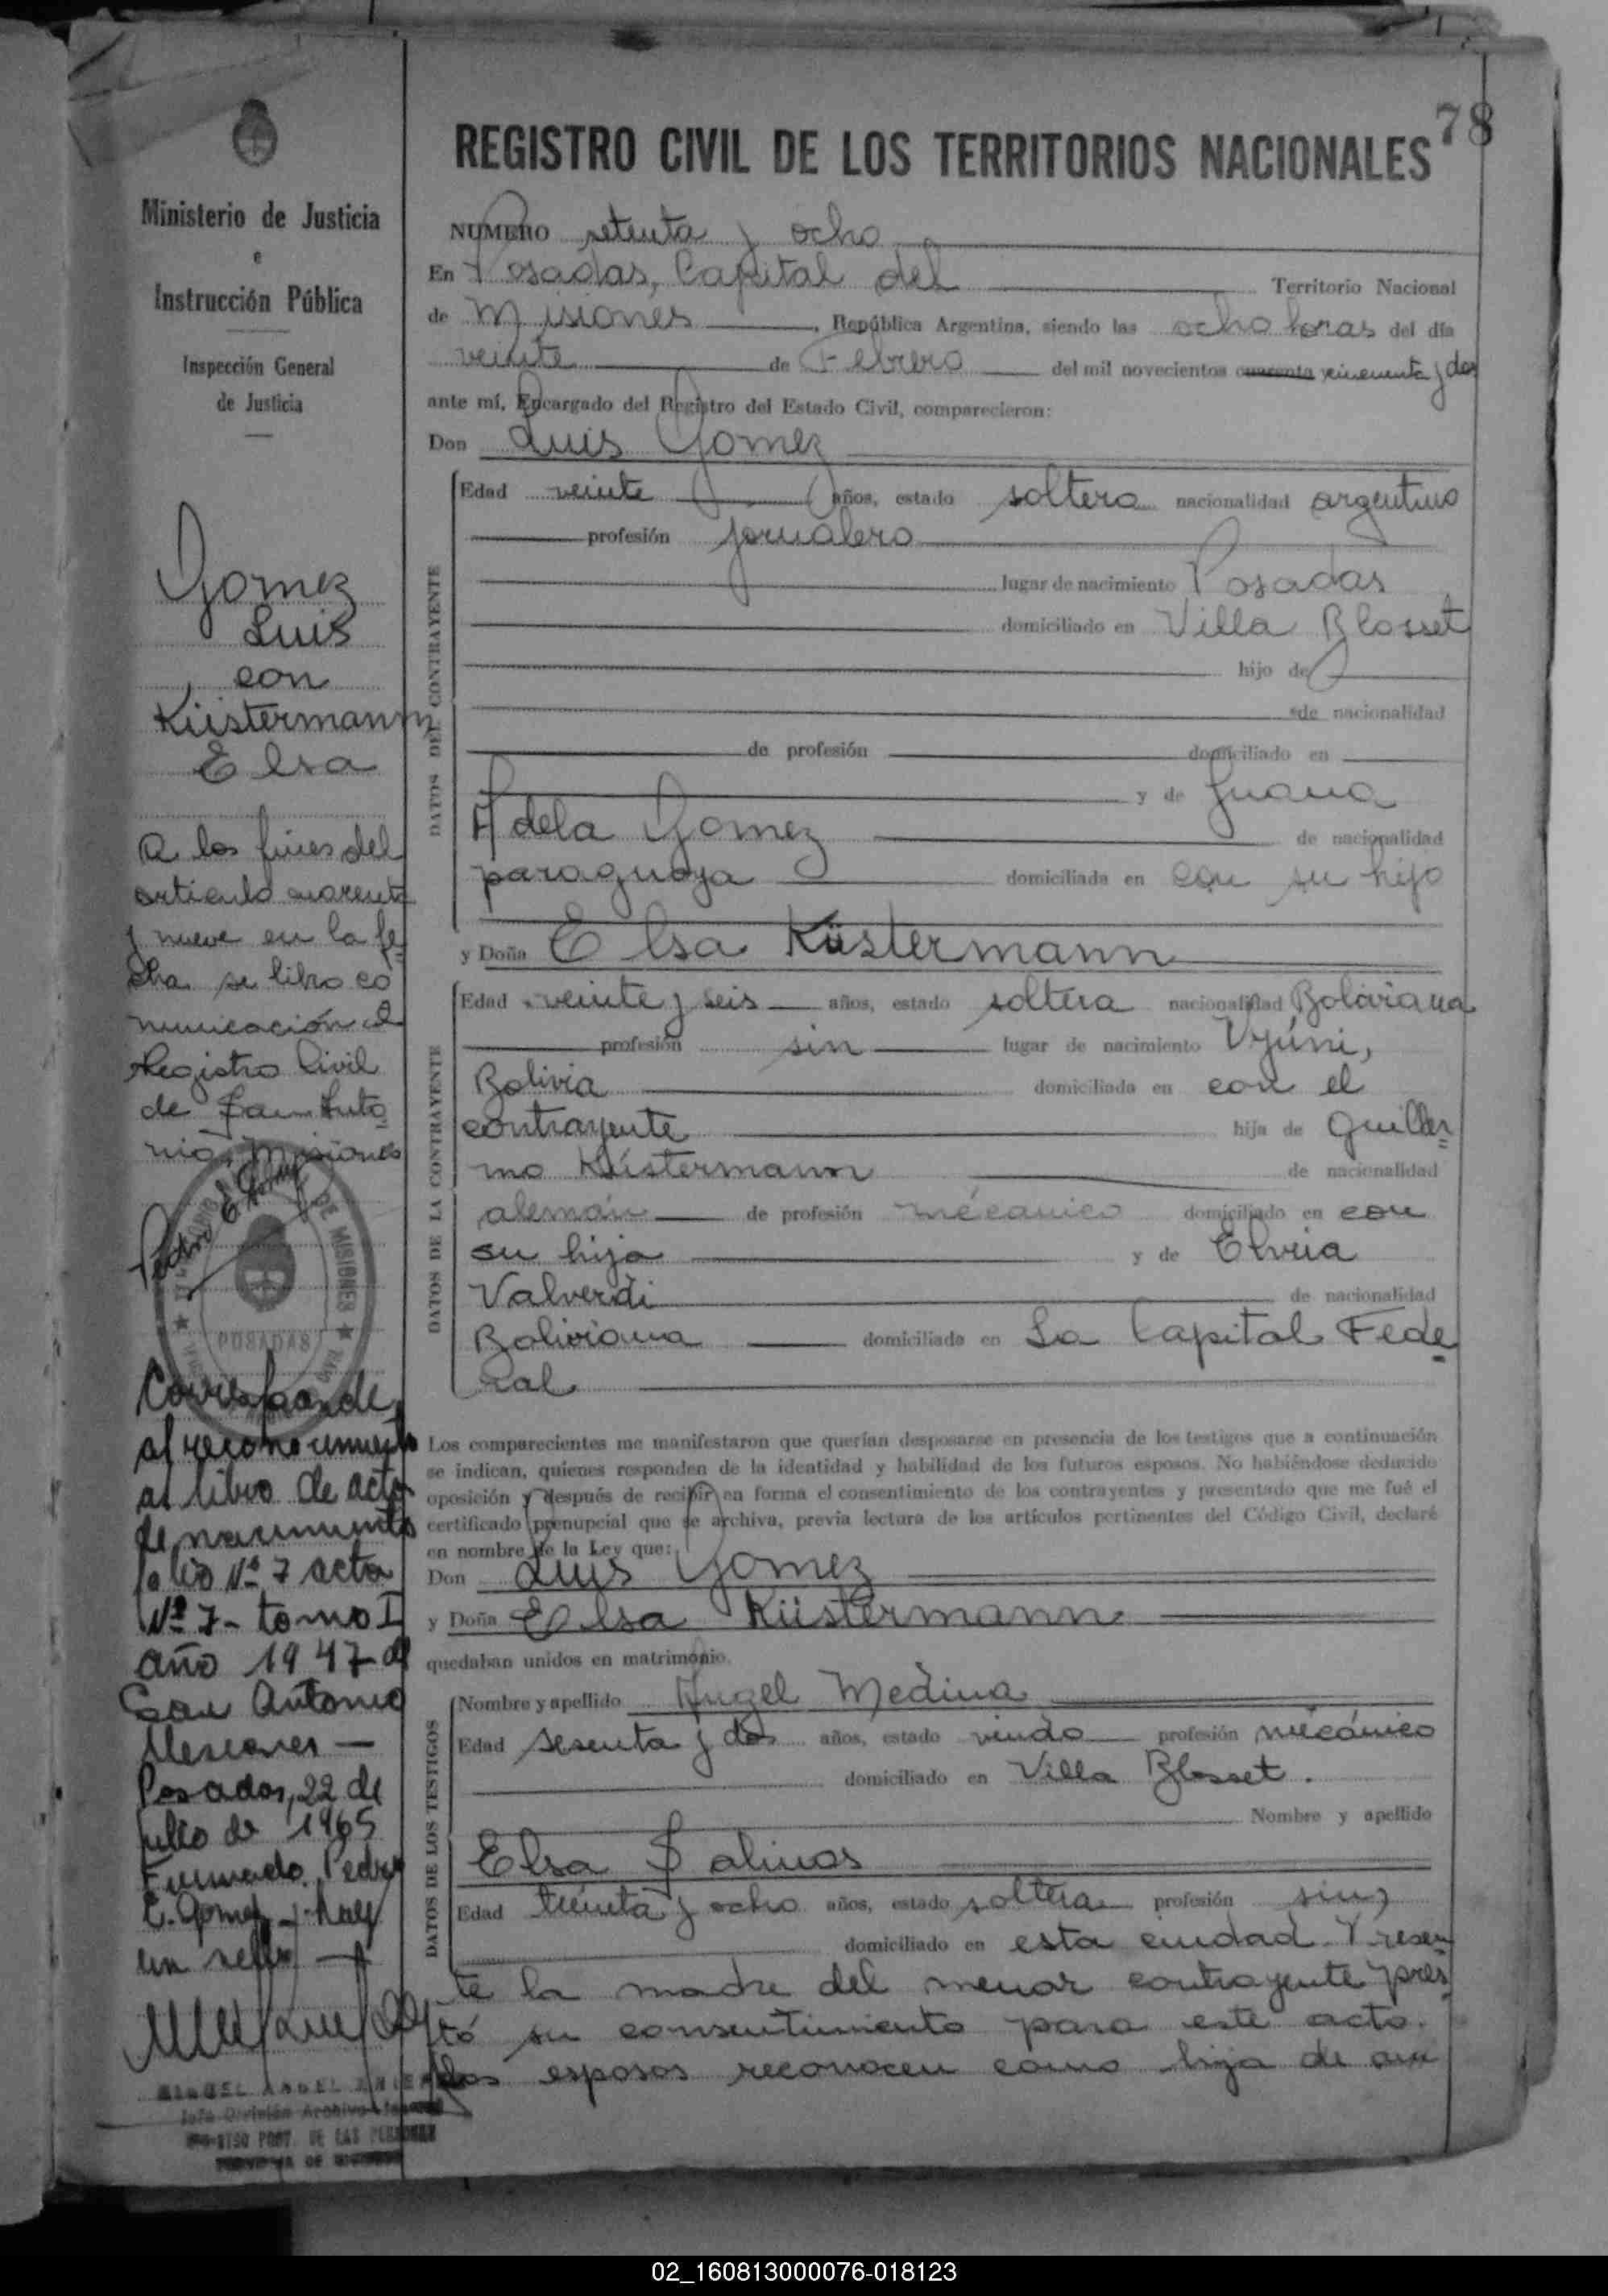 78
Ministerio de Justicia
e
Instrucción Pública
Inspección General
de Justicia
Gomez
Luis
con
Küstermann
Elsa
A los fines del
articulo cuarenta
y nueve en la fe
cha se libro co
municación al
Registro Civil
de San Anto
nio, Misiones
Pedro E. Gomez
DE MISIONES
POSADAS
Corresponde
al reconocimiento
al libro de acta
de nacimiento
folio Nº 7 acta
Nº 7 - tomo I
año 1947 - de
San Antonio
Misiones —
Posadas, 22 de
julio de 1965
Firmado Pedro
E. Gomez - hay
un sello —
REGISTRO CIVIL DE LOS TERRITORIOS NACIONALES
NUMERO setenta y ocho
En Posadas, Capital del Territorio Nacional
de Misiones, República Argentina, siendo las ocho horas del día
veinte de Febrero del mil novecientos cuarenta cincuenta y dos
ante mí, Encargado del Registro del Estado Civil, comparecieron:
Don Luis Gomez
DATOS DEL CONTRAYENTE
Edad veinte años, estado soltero nacionalidad argentino
profesión jornalero
lugar de nacimiento Posadas
domiciliado en Villa Blosset
hijo de
de nacionalidad
de profesión domiciliado en
y de Juana
Adela Gomez de nacionalidad
paraguaya domiciliada en con su hijo
y Doña Elsa Küstermann
DATOS DE LA CONTRAYENTE
Edad veinte y seis años, estado soltera nacionalidad Boliviana
profesión sin lugar de nacimiento Uyúni,
Bolivia domiciliada en con el
contrayente hija de Guiller=
mo Küstermann de nacionalidad
alemán de profesión mécanico domiciliado en con
su hija y de Elvria
Valverdi de nacionalidad
Boliviana domiciliada en La Capital Fede=
ral
Los comparecientes me manifestaron que querían desposarse en presencia de los testigos que a continuación
se indican, quienes responden de la identidad y habilidad de los futuros esposos. No habiéndose deducido
oposición y después de recibir en forma el consentimiento de los contrayentes y presentado que me fué el
certificado prenupcial que se archiva, previa lectura de los artículos pertinentes del Código Civil, declaré
en nombre de la Ley que:
Don Luis Gomez
y Doña Elsa Küstermann
quedaban unidos en matrimonio.
DATOS DE LOS TESTIGOS
Nombre y apellido Angel Medina
Edad sesenta y dos años, estado viudo profesión mecánico
domiciliado en Villa Blosset.
Nombre y apellido
Elsa Salinas
Edad treinta y ocho años, estado soltera profesión sin,
domiciliado en esta ciudad. Presen=
te la madre del menor contrayente pres
tó su consentimiento para este acto.
Los esposos reconocen como hija de am
02_160813000076-018123